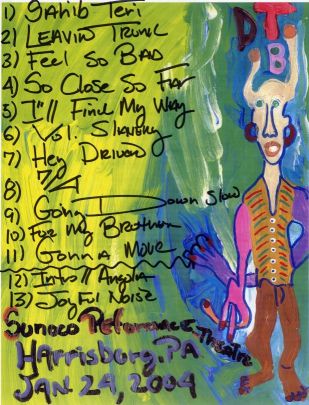 1) Sahib Teri
2) Leavin Trunk
3) Feel So Bad
4) So Close So Far
5) I'll Find My Way
6) Vol. Slavery
7) Hey Driver
8)
9) Going Down Slow
10) For My Brother
11) Gonna Move
12) Intro // Angola
13) Joyful Noise
DTB
Sunoco Performance Theatre
Harrisburg, PA
Jan 24, 2004